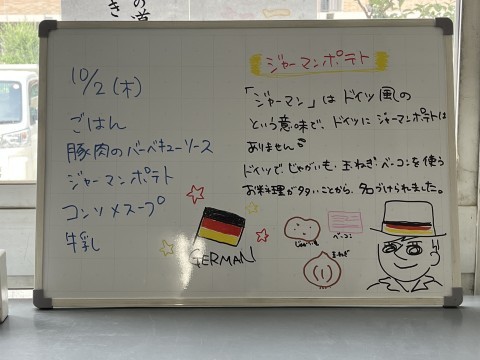 の道
き
10/2(木)
ごはん
豚肉のバーベキューソース
ジャーマンポテト
コンソメスープ
牛乳
ジャーマンポテト
「ジャーマン」はドイツ風の
という意味で、ドイツにジャーマンポテトは
ありません。
ドイツでじゃがいも、玉ねぎ、ベーコンを使う
お料理が多いことから、名づけられました。
GERMAN
じゃがいも
ベーコン
玉ねぎ